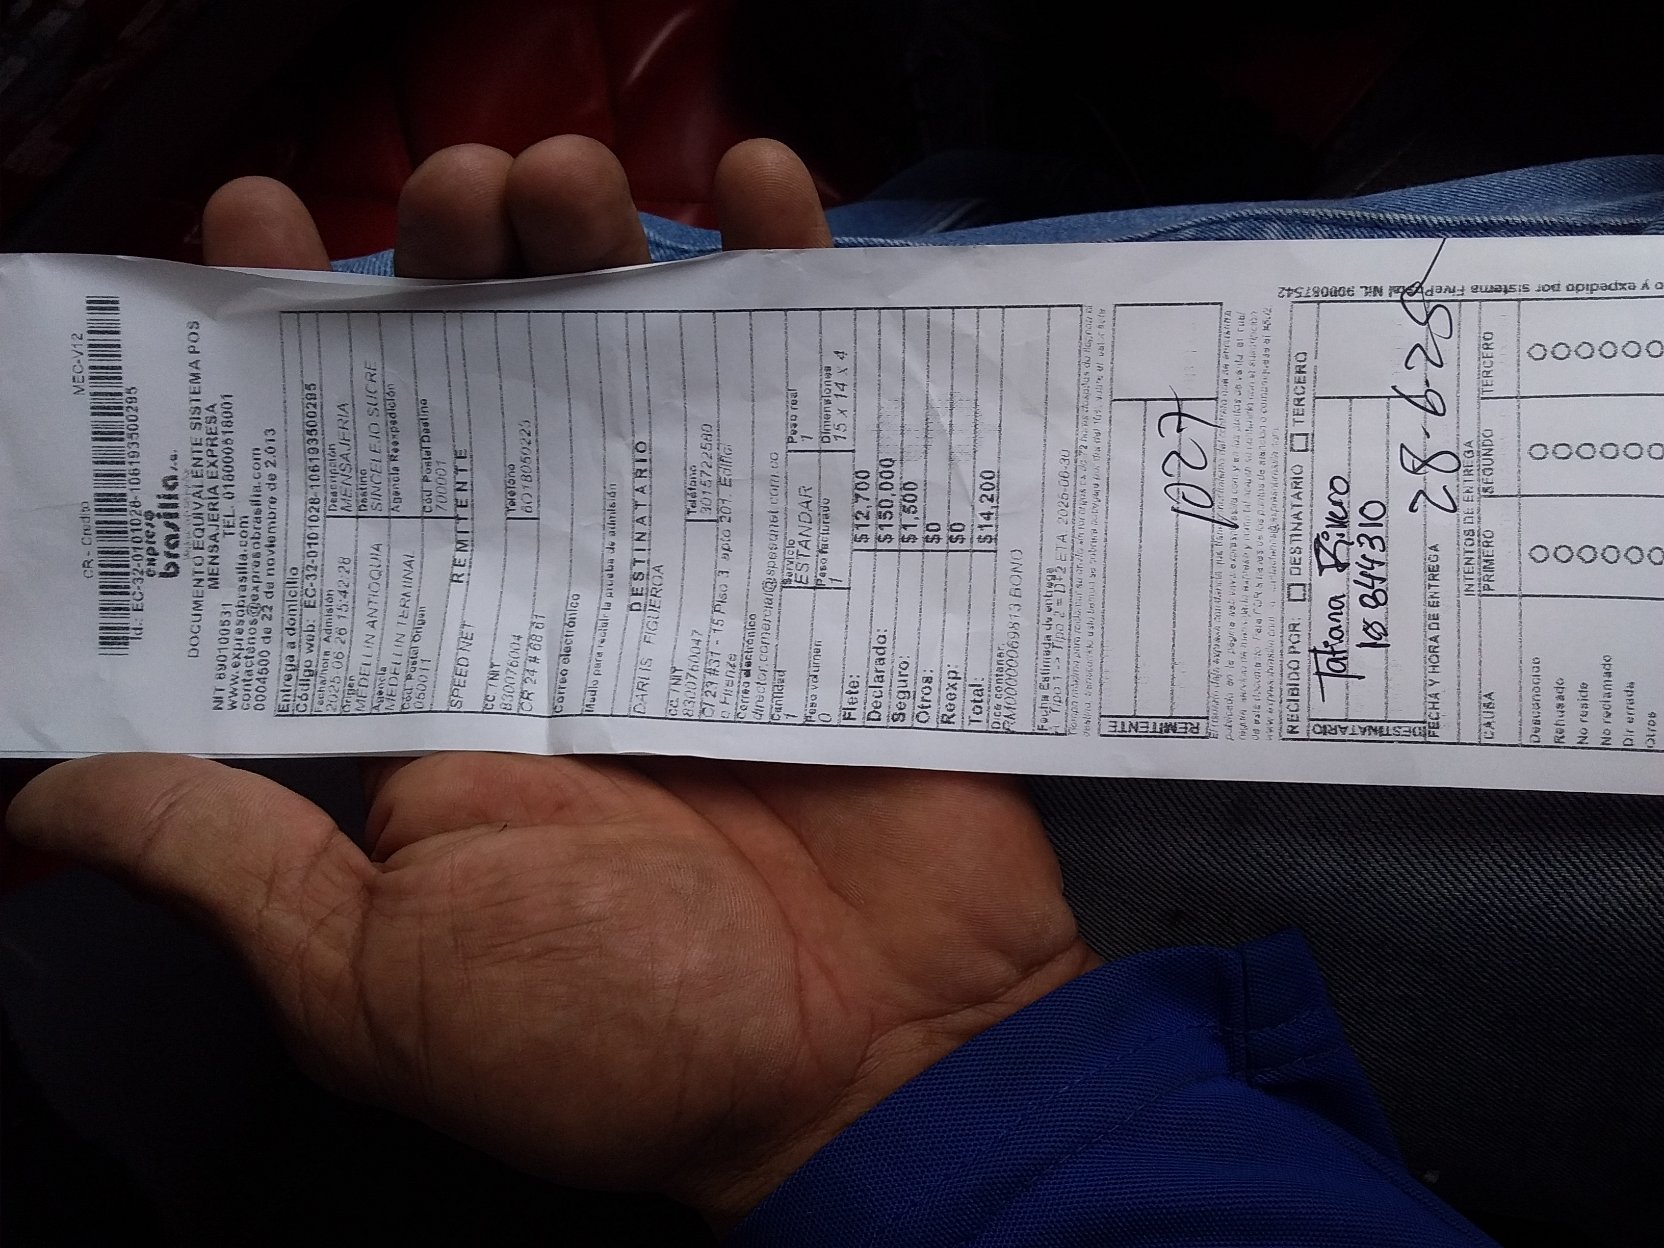 CR - Crédito MEC-V12
Id.: EC-32-0101028-106193500295
expreso
brasilia s.a.
DOCUMENTO EQUIVALENTE SISTEMA POS
MENSAJERIA EXPRESA
NIT 890100531 TEL. 018000518001
www.expresobrasilia.com
contactenos@expresobrasilia.com
0004500 de 22 de noviembre de 2.013
Entrega a domicilio
Código web: EC-32-0101028-106193500295
Fecha/Hora Admisión Descripción
2025 06 26 15:42:28 MENSAJERIA
Origen Destino
MEDELLIN ANTIOQUIA SINCELEJO SUCRE
Agencia Agencia Reexpedición
MEDELLIN TERMINAL
Cód Postal Origen Cód Postal Destino
050011 700001
REMITENTE
SPEED NET
CC / NIT Teléfono
830076004 6018050225
CR 24 # 68 61
Correo electrónico
Medio para recibir la prueba de admisión
DESTINATARIO
DARLIS FIGUEROA
CC / NIT Teléfono
8320760047 3015722580
Cl 27 #31 - 15 Piso 3 apto 201. Edifici
Correo electrónico
Cantidad Servicio Peso real
1 ESTANDAR 1
Peso volumen Peso facturado Dimensiones
0 1 15 X 14 X 4
Flete: $12,700
Declarado: $150,000
Seguro: $1,500
Otros: $0
Reexp: $0
Total: $14,200
Dice contener
BONO
Fecha Estimada de entrega
REMITENTE
1027
RECIBIDO POR: DESTINATARIO TERCERO
DESTINATARIO
Tatiana Rivero
18844310
FECHA Y HORA DE ENTREGA 28-6-25
INTENTOS DE ENTREGA
CAUSA PRIMERO SEGUNDO TERCERO
Desconocido
Rehusado
No reside
No reclamado
Dir errada
Otros
o y expedido por sistema FivePostal Nit. 900087542